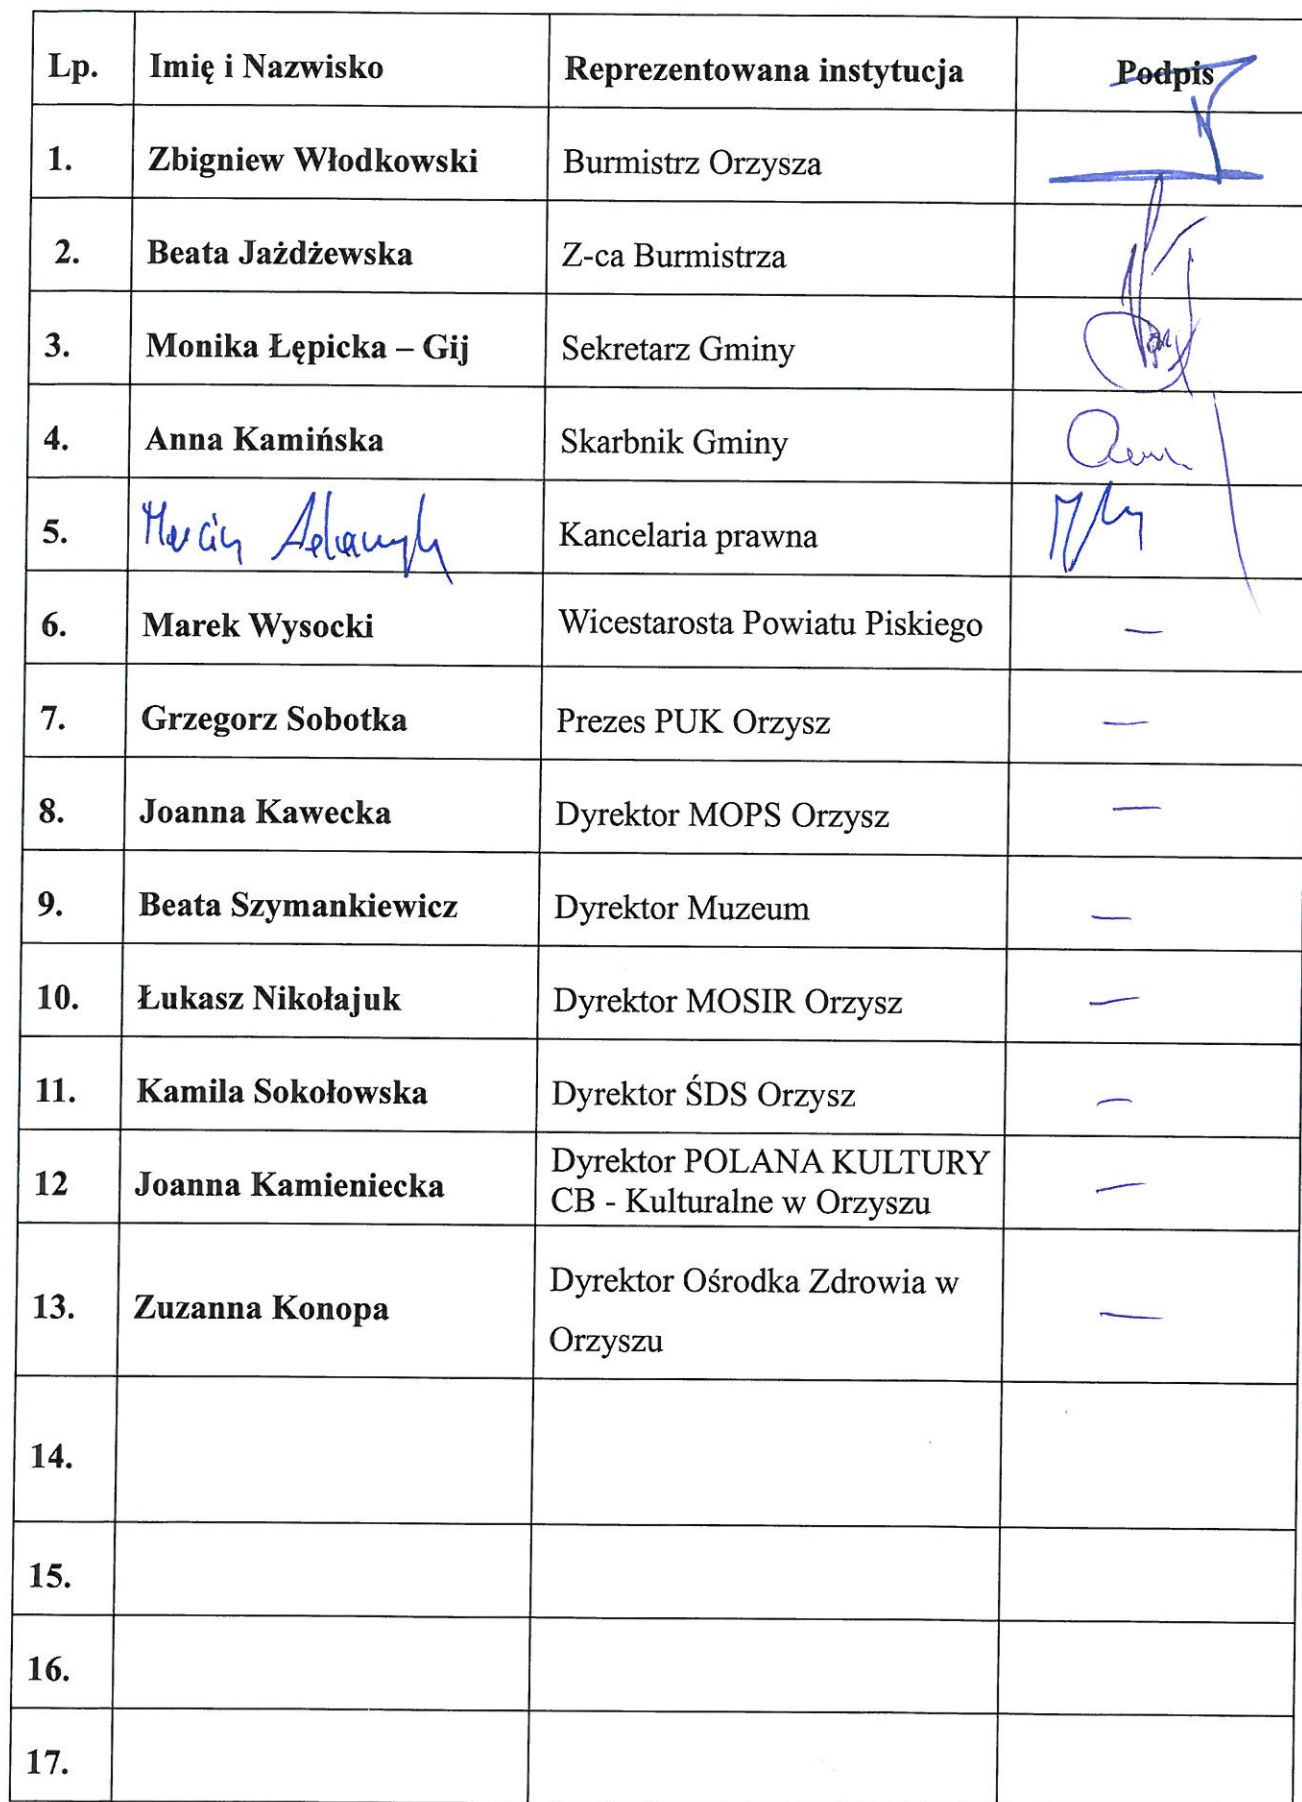 Lp. Imię i Nazwisko Reprezentowana instytucja Podpis
1. Zbigniew Włodkowski Burmistrz Orzysza
2. Beata Jażdżewska Z-ca Burmistrza
3. Monika Łępicka – Gij Sekretarz Gminy
4. Anna Kamińska Skarbnik Gminy
5. Marcin Kancelaria prawna
6. Marek Wysocki Wicestarosta Powiatu Piskiego —
7. Grzegorz Sobotka Prezes PUK Orzysz —
8. Joanna Kawecka Dyrektor MOPS Orzysz —
9. Beata Szymankiewicz Dyrektor Muzeum —
10. Łukasz Nikołajuk Dyrektor MOSIR Orzysz —
11. Kamila Sokołowska Dyrektor ŚDS Orzysz —
12 Joanna Kamieniecka Dyrektor POLANA KULTURY
CB - Kulturalne w Orzyszu —
13. Zuzanna Konopa Dyrektor Ośrodka Zdrowia w
Orzyszu —
14.
15.
16.
17.